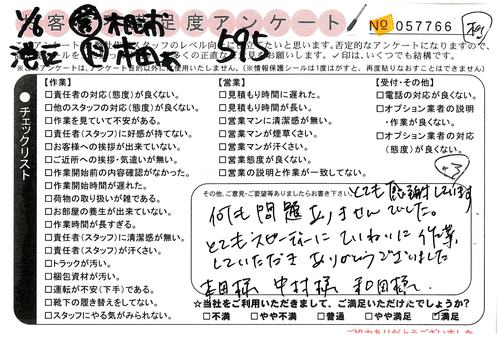 お客様満足度アンケート
No 057766
1/6
595
【作業】
□責任者の対応(態度)が良くない。
□他のスタッフの対応(態度)が良くない。
□作業を見ていて不安がある。
□責任者(スタッフ)に好感が持てない。
□お客様への挨拶が出来ていない。
□ご近所への挨拶・気遣いが無い。
□作業開始前の内容確認がなかった。
□作業開始時間が遅れた。
□荷物の取り扱いが雑である。
□お部屋の養生が出来ていない。
□作業時間が長すぎる。
□責任者(スタッフ)に清潔感が無い。
□責任者(スタッフ)が汗くさい。
□トラックが汚い。
□梱包資材が汚い。
□運転が不安(下手)である。
□靴下の履き替えをしてない。
□スタッフにやる気がみられない。
【営業】
□見積もり時間に遅れた。
□見積もり時間が長い。
□営業マンに清潔感が無い。
□営業マンが煙草くさい。
□営業マンが汗くさい。
□営業態度が良くない。
□営業の説明と作業が一致してない。
【受付・その他】
□電話の対応が良くない。
□オプション業者の説明
・作業が良くない。
□オプション業者の対応
(態度)が良くない。
●チェックリスト
その他、ご意見・ご要望等ありましたらお書き下さい。
とても感謝しています
何も問題ありませんでした。
とてもスピーディーにていねいに作業
していただきありがとうございました
吉田様 中村様 和田様
☆当社をご利用いただきまして、ご満足いただけたでしょうか?
□不満 □やや不満 □普通 □やや満足 ☑満足
ご協力ありがとうございました